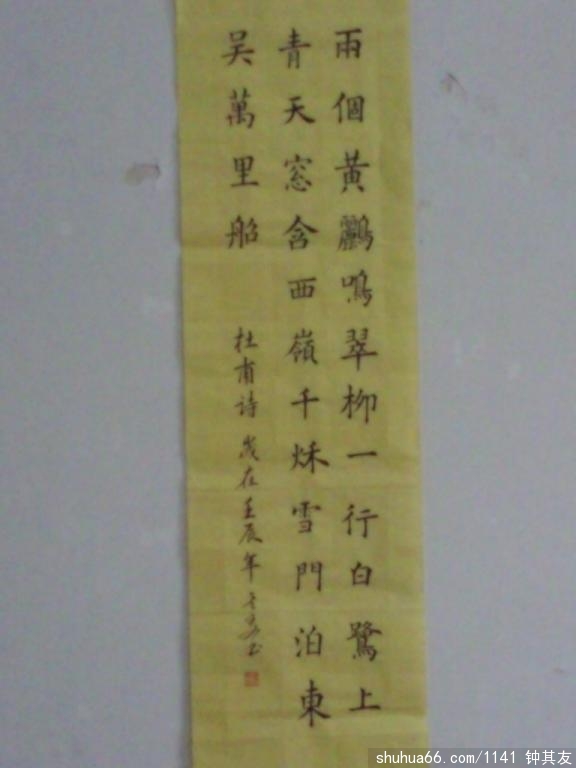 兩個黃鸝鳴翠柳一行白鷺上
青天窓含西嶺千秌雪門泊東
吴萬里船
杜甫诗 歲在壬辰年
shuhua66.com/1141 钟其友